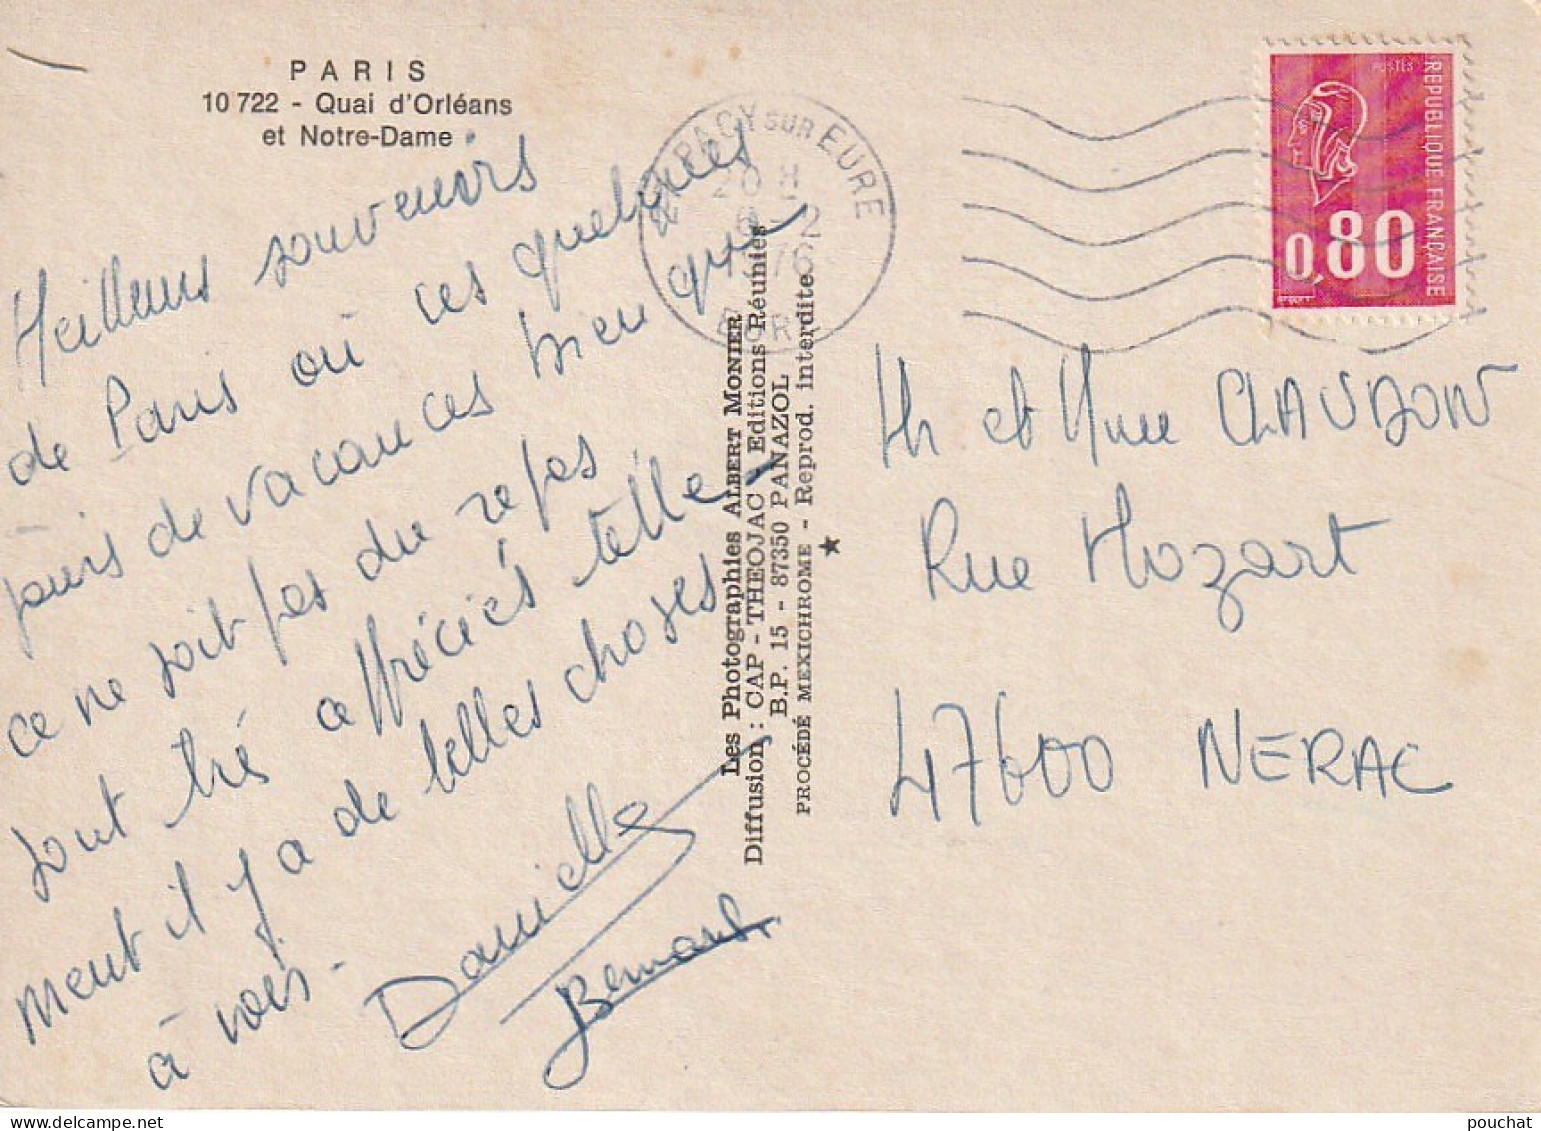 PARIS
10 722 - Quai d'Orléans
et Notre-Dame
Meilleurs souvenirs
de Paris où ces quelques
jours de vacances bien que
ce ne soit pas du repos
sont très appréciés telle-
ment il y a de belles choses
à voir.
Danielle
Bernard
PACY SUR EURE
20 H
6 - 2
1976
EURE
Les Photographies ALBERT MONIER
Diffusion : CAP - THEOJAC - Editions Réunies
B.P. 15 - 87350 PANAZOL
PROCÉDÉ MEXICHROME - Reprod. interdite.
POSTES
REPUBLIQUE FRANÇAISE
0,80
Mr et Mme CLAUDON
Rue Mozart
47600 NERAC
pouchat